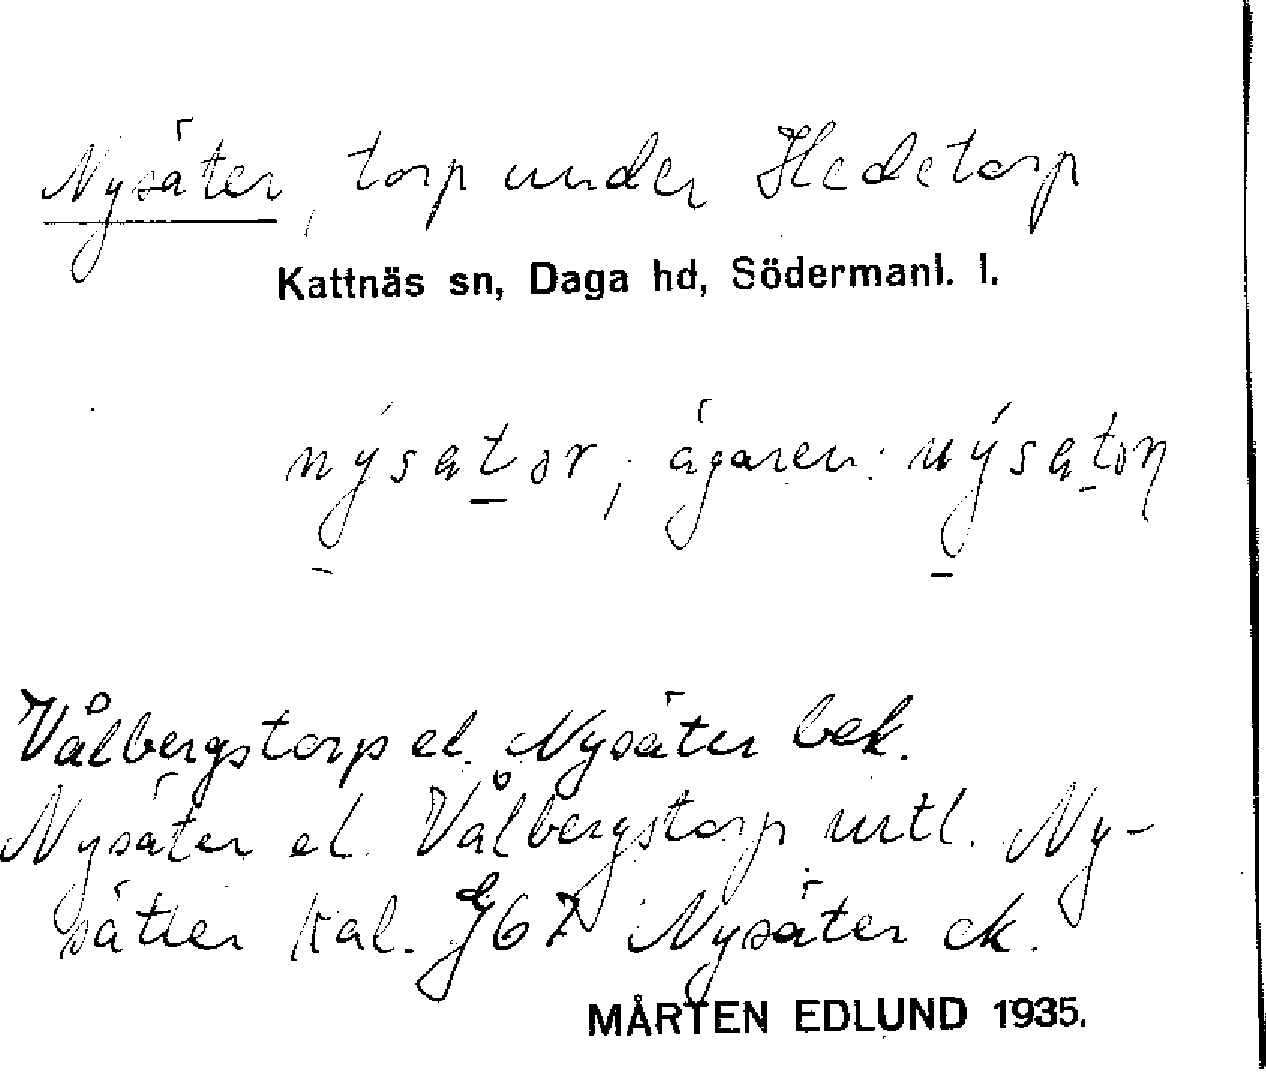 Nysäter, torp under Hedetorp
Kattnäs sn, Daga hd, Södermanl. l.
nýsator; ägaren: nýsaton
Vålbergstorp el. Nysäter bek.
Nysäter el. Vålbergstorp urtl. Ny-
sätter kal. J67 Nysäter ek.
MÅRTEN EDLUND 1935.